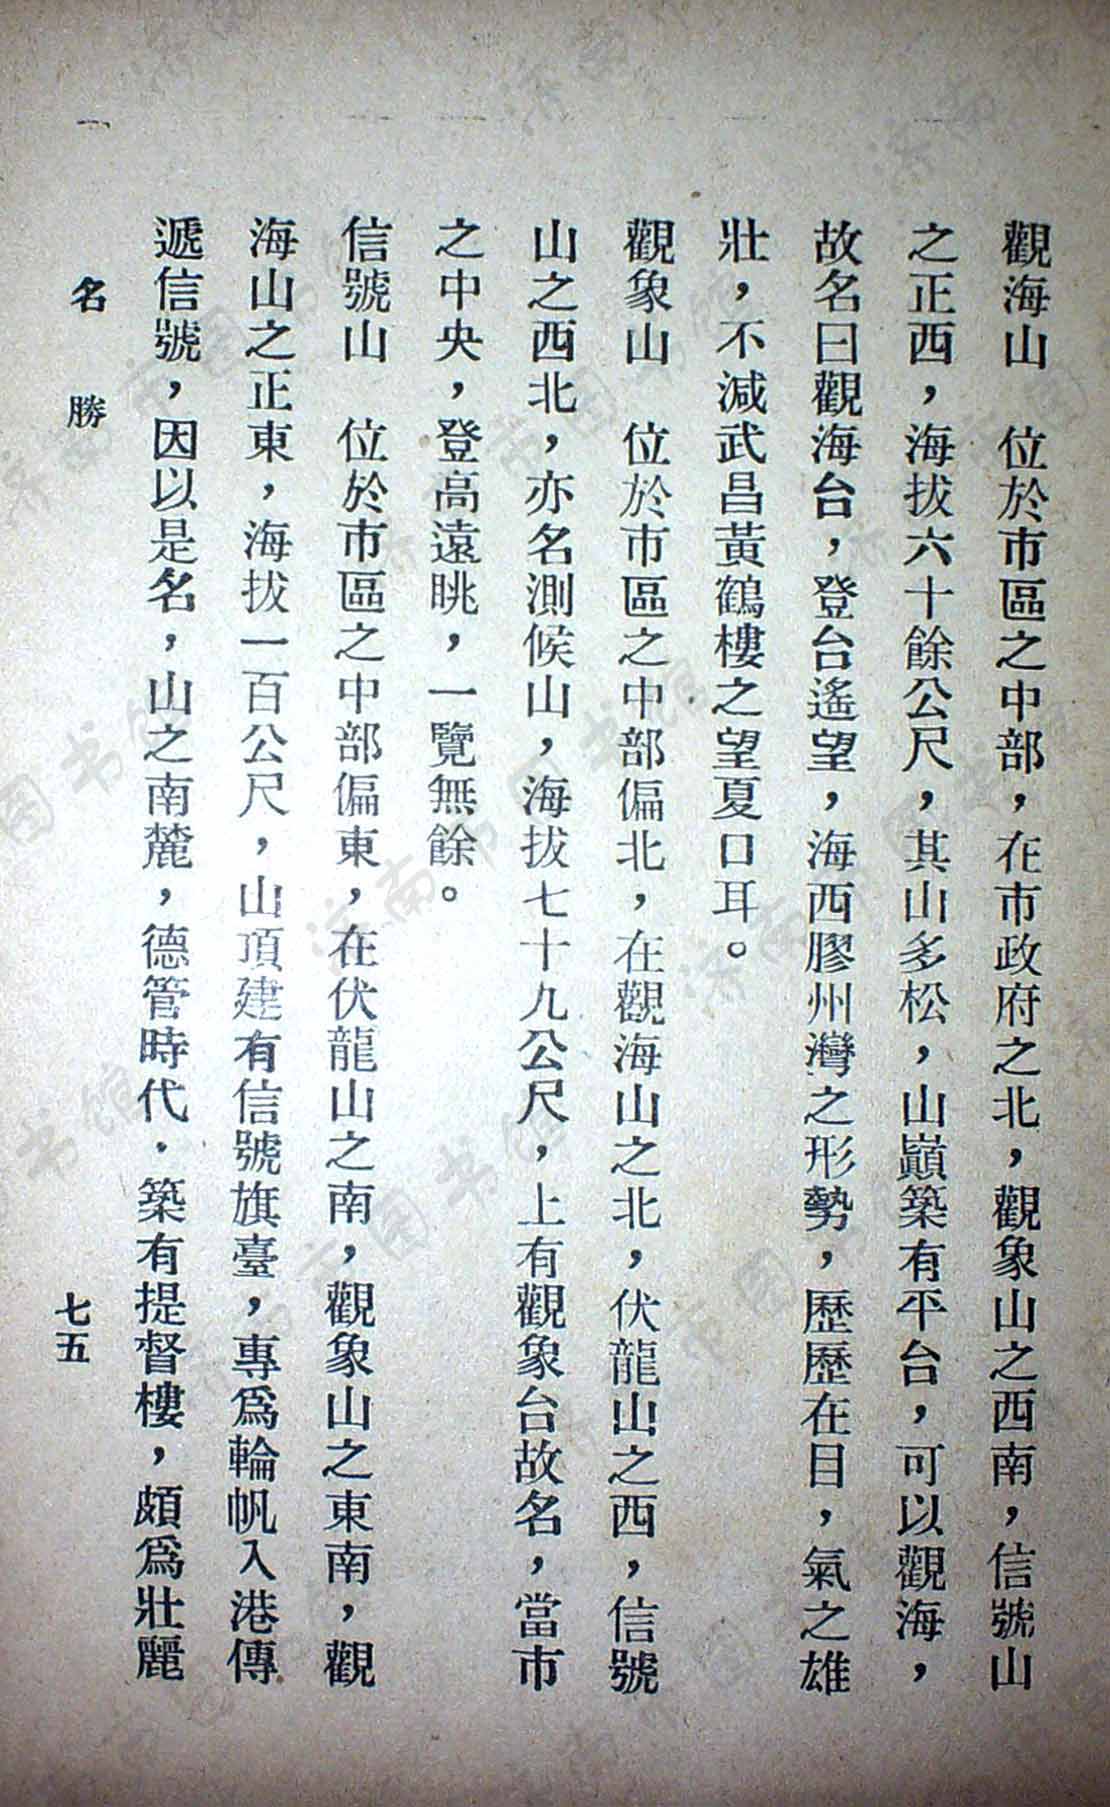 觀海山　位於市區之中部，在市政府之北，觀象山之西南，信號山
之正西，海拔六十餘公尺，其山多松，山巔築有平台，可以觀海，
故名曰觀海台，登台遙望，海西膠州灣之形勢，歷歷在目，氣之雄
壯，不減武昌黃鶴樓之望夏口耳。
觀象山　位於市區之中部偏北，在觀海山之北，伏龍山之西，信號
山之西北，亦名測候山，海拔七十九公尺，上有觀象台故名，當市
之中央，登高遠眺，一覽無餘。
信號山　位於市區之中部偏東，在伏龍山之南，觀象山之東南，觀
海山之正東，海拔一百公尺，山頂建有信號旗臺，專爲輪帆入港傳
遞信號，因以是名，山之南麓，德管時代．築有提督樓，頗爲壯麗
名　勝　七五
济南市图书馆